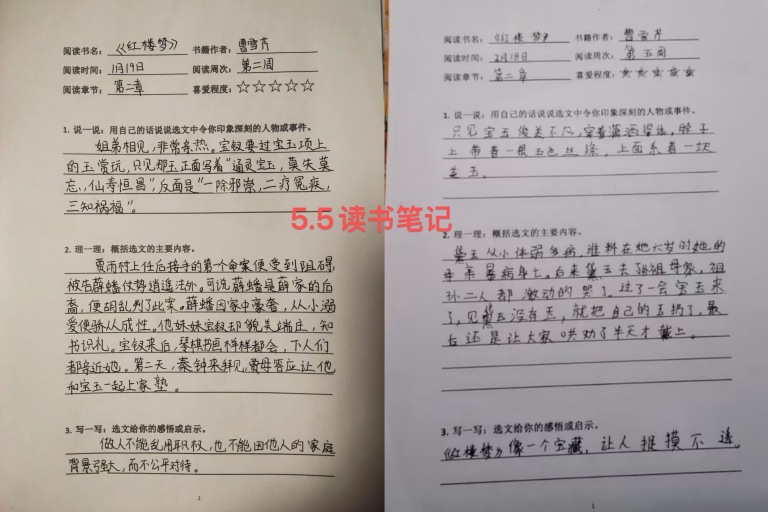 阅读书名：《红楼梦》 书籍作者：曹雪芹
阅读时间：1月19日 阅读周次：第二周
阅读章节：第二章 喜爱程度：☆☆☆☆☆
1. 说一说：用自己的话说说选文中令你印象深刻的人物或事件。
姐弟相见，非常亲热。宝钗要过宝玉项上
的玉赏玩，只见那玉正面写着“通灵宝玉，莫失莫
忘，仙寿恒昌”，反面是“一除邪祟，二疗冤疾，
三知祸福”。
2. 理一理：概括选文的主要内容。
贾雨村上任后接手的第一个命案便受到阻碍，
被告薛蟠仗势逍遥法外。可说薛蟠是薛家的后
裔，便胡乱判了此案。薛蟠因家中豪奢，从小溺
爱使骄从成性。他妹妹宝钗却貌美端庄，知
书识礼。宝钗来后，琴棋书画样样都会，下人们
都亲近她。第二天，秦钟来拜见，贾母答应让他
和宝玉一起上家塾。
3. 写一写：选文给你的感悟或启示。
做人不能乱用职权，也不能因他人的家庭
背景强大，而不公平对待。
1
5.5读书笔记
阅读书名：《红楼梦》 书籍作者：曹雪芹
阅读时间：2月18日 阅读周次：第五周
阅读章节：第二章 喜爱程度：☆☆☆☆☆
1. 说一说：用自己的话说说选文中令你印象深刻的人物或事件。
只见宝玉俊美不凡，穿着潇洒得体，脖子
上带着一根五色丝绦，上面系着一块
美玉。
2. 理一理：概括选文的主要内容。
黛玉从小体弱多病，谁料在她六岁时她的
母亲暴病身亡。后来黛玉去了外祖母家，祖
孙二人都激动的哭了。过了一会宝玉来
了，见黛玉没有玉，就把自己的玉扔了，最
后还是让大家哄劝了半天才戴上。
3. 写一写：选文给你的感悟或启示。
《红楼梦》像一个宝藏，让人捉摸不透。
1